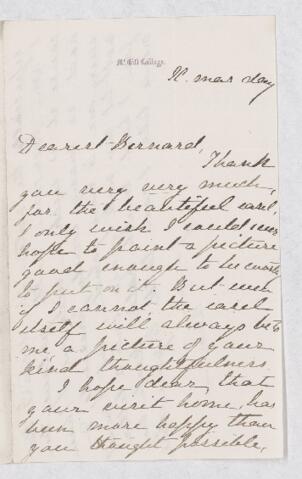 McGill College.
X. mas day
Dearest Bernard,
Thank
you very very much,
for the beautiful easel,
I only wish I could ever
hope to paint a picture
good enough to be worth
to put on it. But even
if I cannot the easel
itself will always be to
me, a picture of your
kind thoughtfulness
I hope dear, that
your visit home, has
been more happy than
you thought possible,